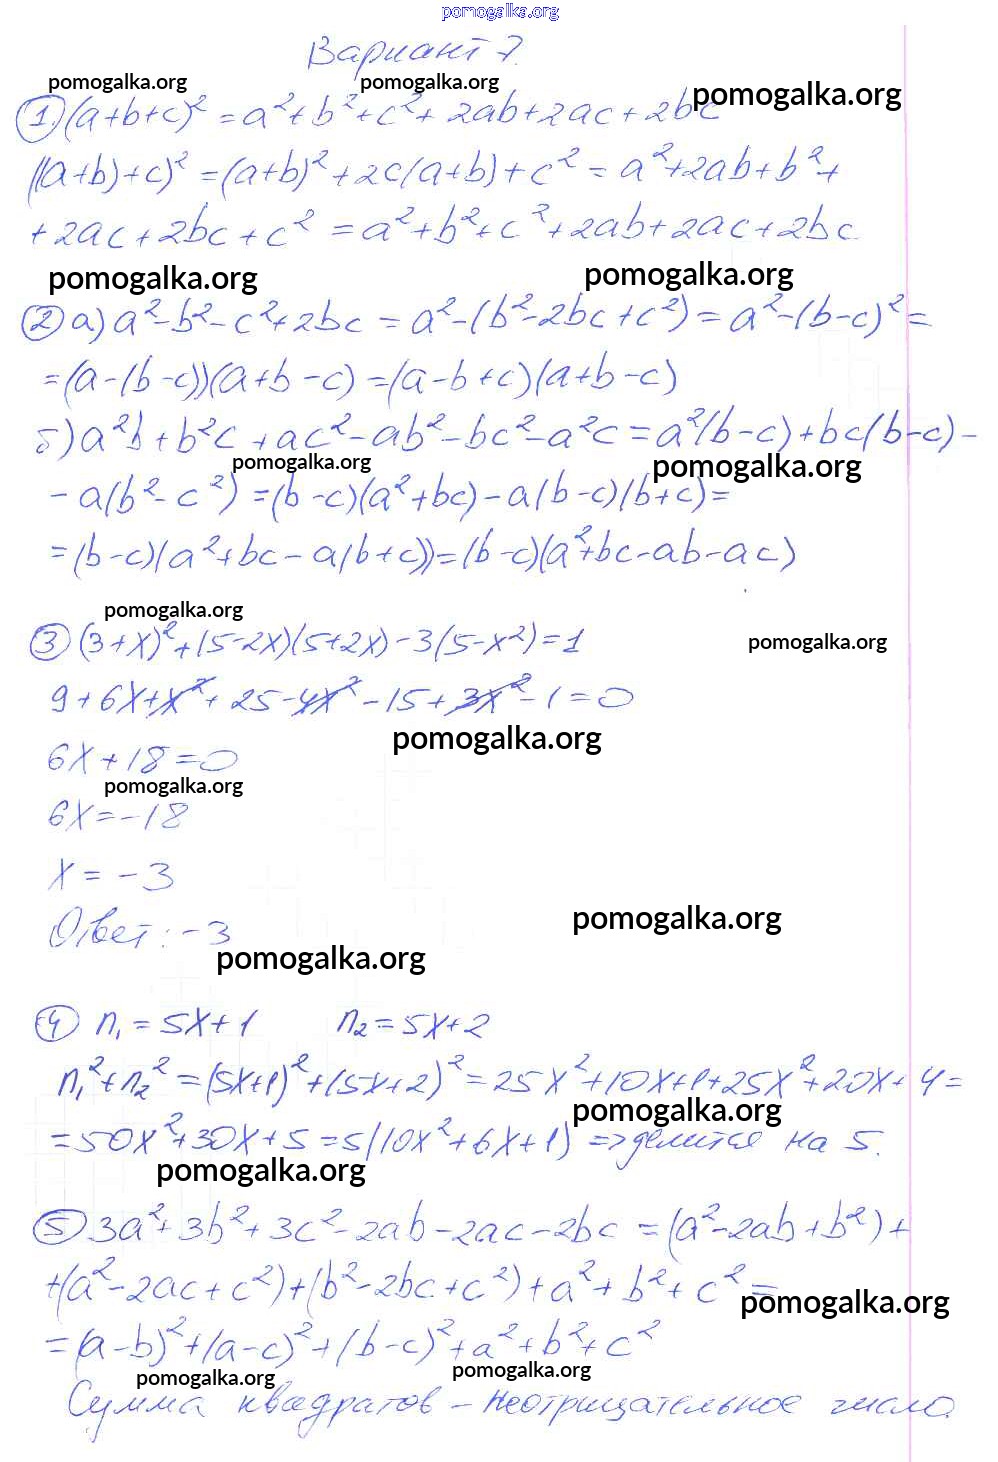 pomogalka.org
Вариант 7.
pomogalka.org pomogalka.org pomogalka.org
① (a+b+c)² = a²+b²+c²+ 2ab+2ac+2bc
((a+b)+c)² = (a+b)²+2c(a+b)+c² = a²+2ab+b²+
+2ac+2bc+c² = a²+b²+c²+2ab+2ac+2bc.
pomogalka.org pomogalka.org
② а) a²-b²-c²+2bc = a²-(b²-2bc+c²) = a²-(b-c)² =
=(a-(b-c))(a+b-c) =(a-b+c)(a+b-c)
б) a²b+b²c+ac²-ab²-bc²-a²c = a²(b-c)+bc(b-c)-
pomogalka.org pomogalka.org
- a(b²-c²) =(b-c)(a²+bc)-a(b-c)(b+c)=
=(b-c)(a²+bc-a(b+c))=(b-c)(a²+bc-ab-ac)
pomogalka.org
③ (3+x)²+(5-2x)(5+2x)-3(5-x²)=1
pomogalka.org
9+6x+x²+25-4x²-15+3x²-1=0
pomogalka.org
6x+18=0
pomogalka.org
6x=-18
x = -3
pomogalka.org
Ответ: -3
pomogalka.org
④ n₁ = 5x+1 n₂ = 5x+2
n₁²+n₂² = (5x+1)²+(5x+2)² = 25x²+10x+1+25x²+20x+4=
pomogalka.org
=50x²+30x+5=5(10x²+6x+1) => делится на 5.
pomogalka.org
⑤ 3a²+3b²+3c²-2ab-2ac-2bc = (a²-2ab+b²)+
+(a²-2ac+c²)+(b²-2bc+c²)+a²+b²+c² =
pomogalka.org
=(a-b)²+(a-c)²+(b-c)²+a²+b²+c²
pomogalka.org pomogalka.org
Сумма квадратов - неотрицательное число.